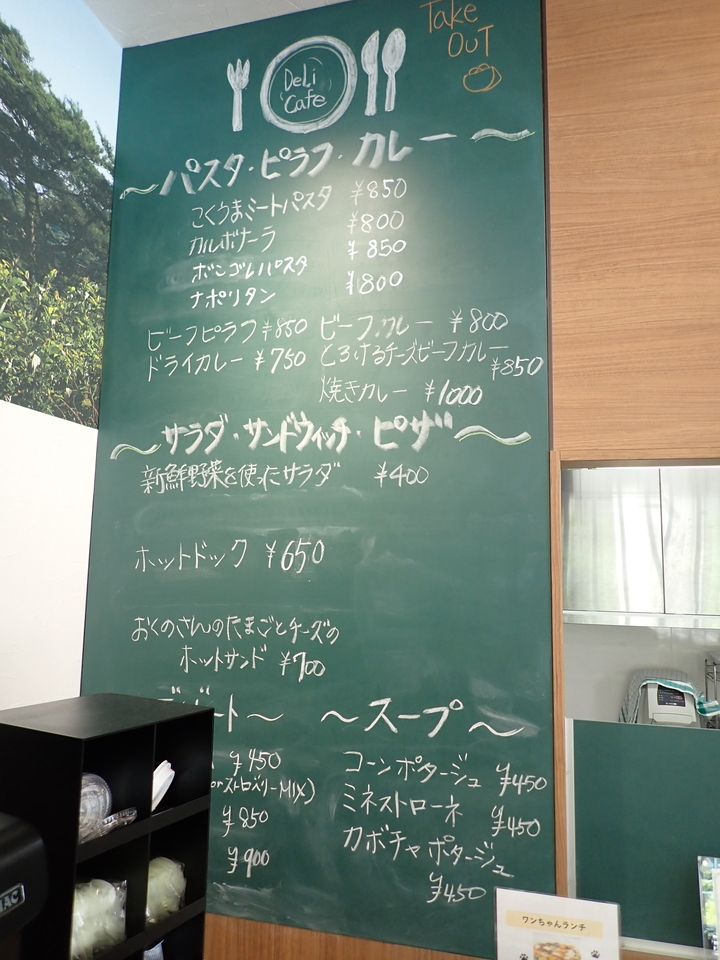 Take
OUT
Deli
Cafe
～パスタ・ピラフ・カレー～
こくうまミートパスタ ¥850
カルボナーラ ¥800
ボンゴレパスタ ¥850
ナポリタン ¥800
ビーフピラフ ¥850 ビーフカレー ¥800
ドライカレー ¥750 とろけるチーズビーフカレー
¥850
焼きカレー ¥1000
～サラダ・サンドウィッチ・ピザ～
新鮮野菜を使ったサラダ ¥400
ホットドック ¥650
おくのさんのたまごとチーズの
ホットサンド ¥700
ート～
¥450
orストロベリーMIX)
¥850
¥900
～スープ～
コーンポタージュ ¥450
ミネストローネ ¥450
カボチャポタージュ
¥450
ワンちゃんランチ